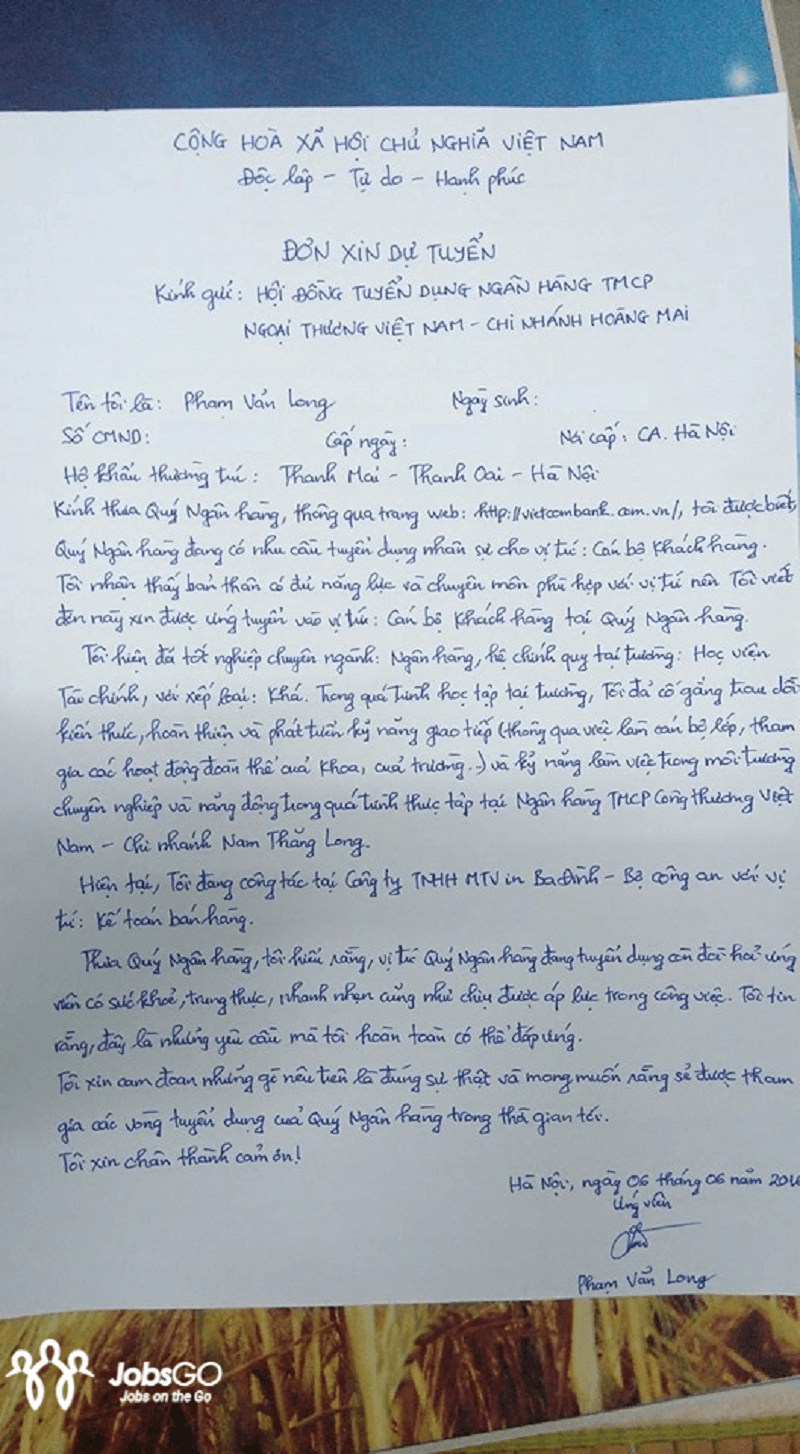 CỘNG HOÀ XÃ HỘI CHỦ NGHĨA VIỆT NAM
Độc lập - Tự do - Hạnh phúc
ĐƠN XIN DỰ TUYỂN
Kính gửi: HỘI ĐỒNG TUYỂN DỤNG NGÂN HÀNG TMCP
NGOẠI THƯƠNG VIỆT NAM - CHI NHÁNH HOÀNG MAI
Tên tôi là: Phạm Văn Long Ngày sinh:
Số CMND: Cấp ngày: Nơi cấp: CA. Hà Nội
Hộ khẩu thường trú: Thanh Mai - Thanh Oai - Hà Nội
Kính thưa Quý Ngân hàng, thông qua trang web: http://vietcombank.com.vn/, tôi được biết
Quý Ngân hàng đang có nhu cầu tuyển dụng nhân sự cho vị trí: Cán bộ Khách hàng.
Tôi nhận thấy bản thân có đủ năng lực và chuyên môn phù hợp với vị trí nên Tôi viết
đơn này xin được ứng tuyển vào vị trí: Cán bộ Khách hàng tại Quý Ngân hàng.
Tôi hiện đã tốt nghiệp chuyên ngành: Ngân hàng, hệ chính quy tại trường: Học viện
Tài chính, với xếp loại: Khá. Trong quá trình học tập tại trường, Tôi đã cố gắng trau dồi
kiến thức, hoàn thiện và phát triển kỹ năng giao tiếp (thông qua việc làm cán bộ lớp, tham
gia các hoạt động đoàn thể của Khoa, của trường.) và kỹ năng làm việc trong môi trường
chuyên nghiệp và năng động trong quá trình thực tập tại Ngân hàng TMCP Công thương Việt
Nam - Chi nhánh Nam Thăng Long.
Hiện tại, Tôi đang công tác tại Công ty TNHH MTV in Ba Đình - Bộ công an với vị
trí: Kế toán bán hàng.
Thưa Quý Ngân hàng, tôi hiểu rằng, vị trí Quý Ngân hàng đang tuyển dụng cần đòi hỏi ứng
viên có sức khoẻ, trung thực, nhanh nhẹn cũng như chịu được áp lực trong công việc. Tôi tin
rằng, đây là những yêu cầu mà tôi hoàn toàn có thể đáp ứng.
Tôi xin cam đoan những gì nêu trên là đúng sự thật và mong muốn rằng sẽ được tham
gia các vòng tuyển dụng của Quý Ngân hàng trong thời gian tới.
Tôi xin chân thành cảm ơn!
Hà Nội, ngày 06 tháng 06 năm
Ứng viên
Phạm Văn Long
JobsGO
Jobs on the Go